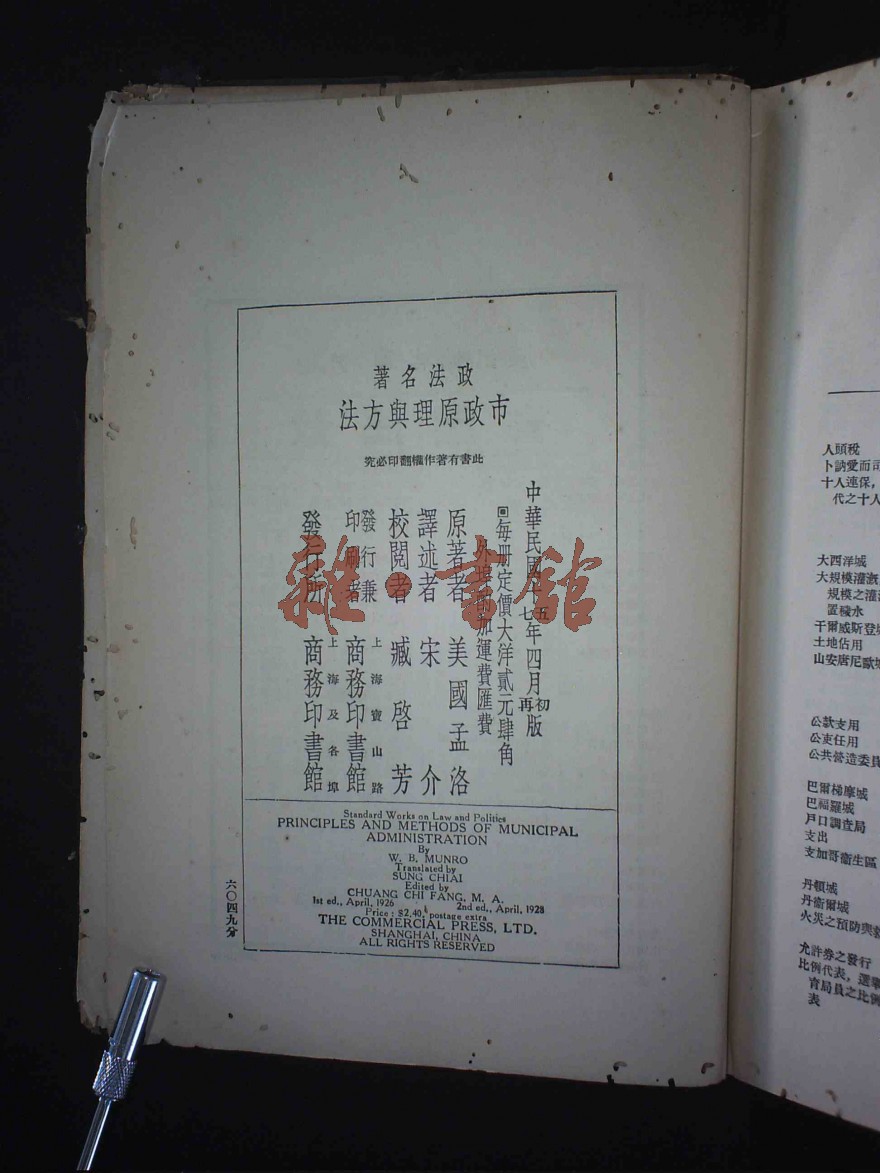 政法名著
市政原理與方法
此書有著作權翻印必究
中華民國十五年四月初版
七年四月再版
每冊定價大洋貳元肆角
外埠酌加運費匯費
原著者 美國孟洛
譯述者 宋介
校閱者 臧啓芳
發行兼印刷者 上海寶山路 商務印書館
發行所 上海及各埠 商務印書館
Standard Works on Law and Politics
PRINCIPLES AND METHODS OF MUNICIPAL
ADMINISTRATION
By
W. B. MUNRO
Translated by
SUNG CHIAI
Edited by
CHUANG CHI FANG, M. A.
1st ed., April, 1926 2nd ed., April, 1928
Price: $2.40, postage extra
THE COMMERCIAL PRESS, LTD.
SHANGHAI, CHINA
ALL RIGHTS RESERVED
六〇四九分
雜·書館
人頭稅
卜訥愛而司
十人連保,
代之十人
大西洋城
大規模灌溉
規模之灌
置穢水
干爾威斯登城
土地佔用
山安唐尼歐城
公款支用
公吏任用
公共營造委員
巴爾梯摩城
巴福羅城
戶口調查局
支出
支加哥衞生區
丹頓城
丹衞爾城
火災之預防與
允許券之發行
比例代表,選舉
育局員之比例
表